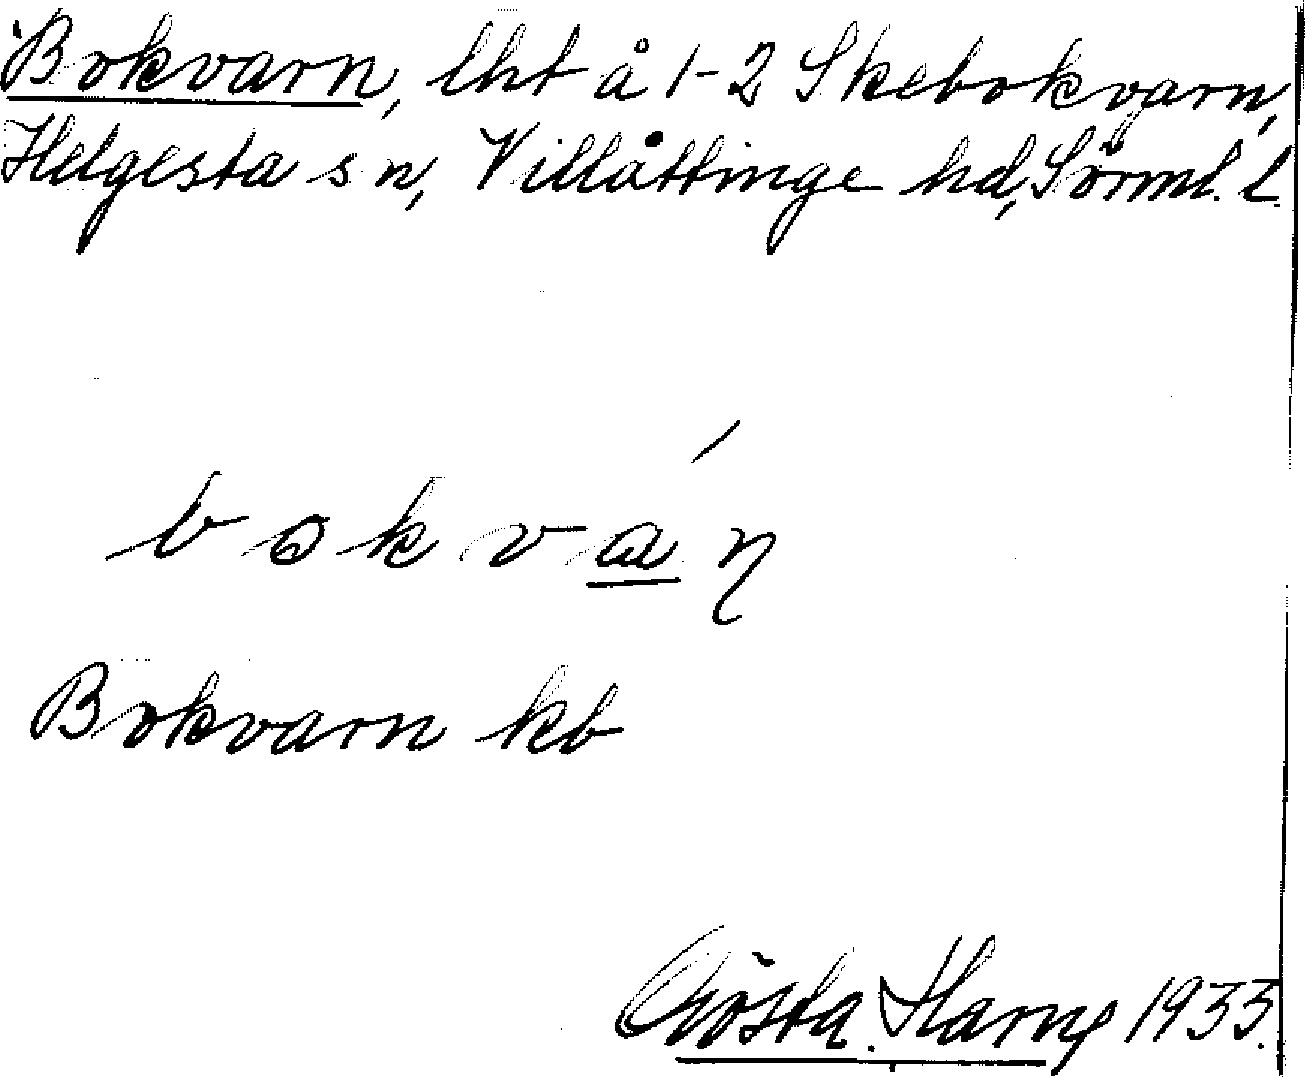 Bokvarn, lht å 1-2 Skebokvarn,
Helgesta sn, Villåttinge hd, Sörml. l.
bokván
Bokvarn kb
Gösta Harng 1933.